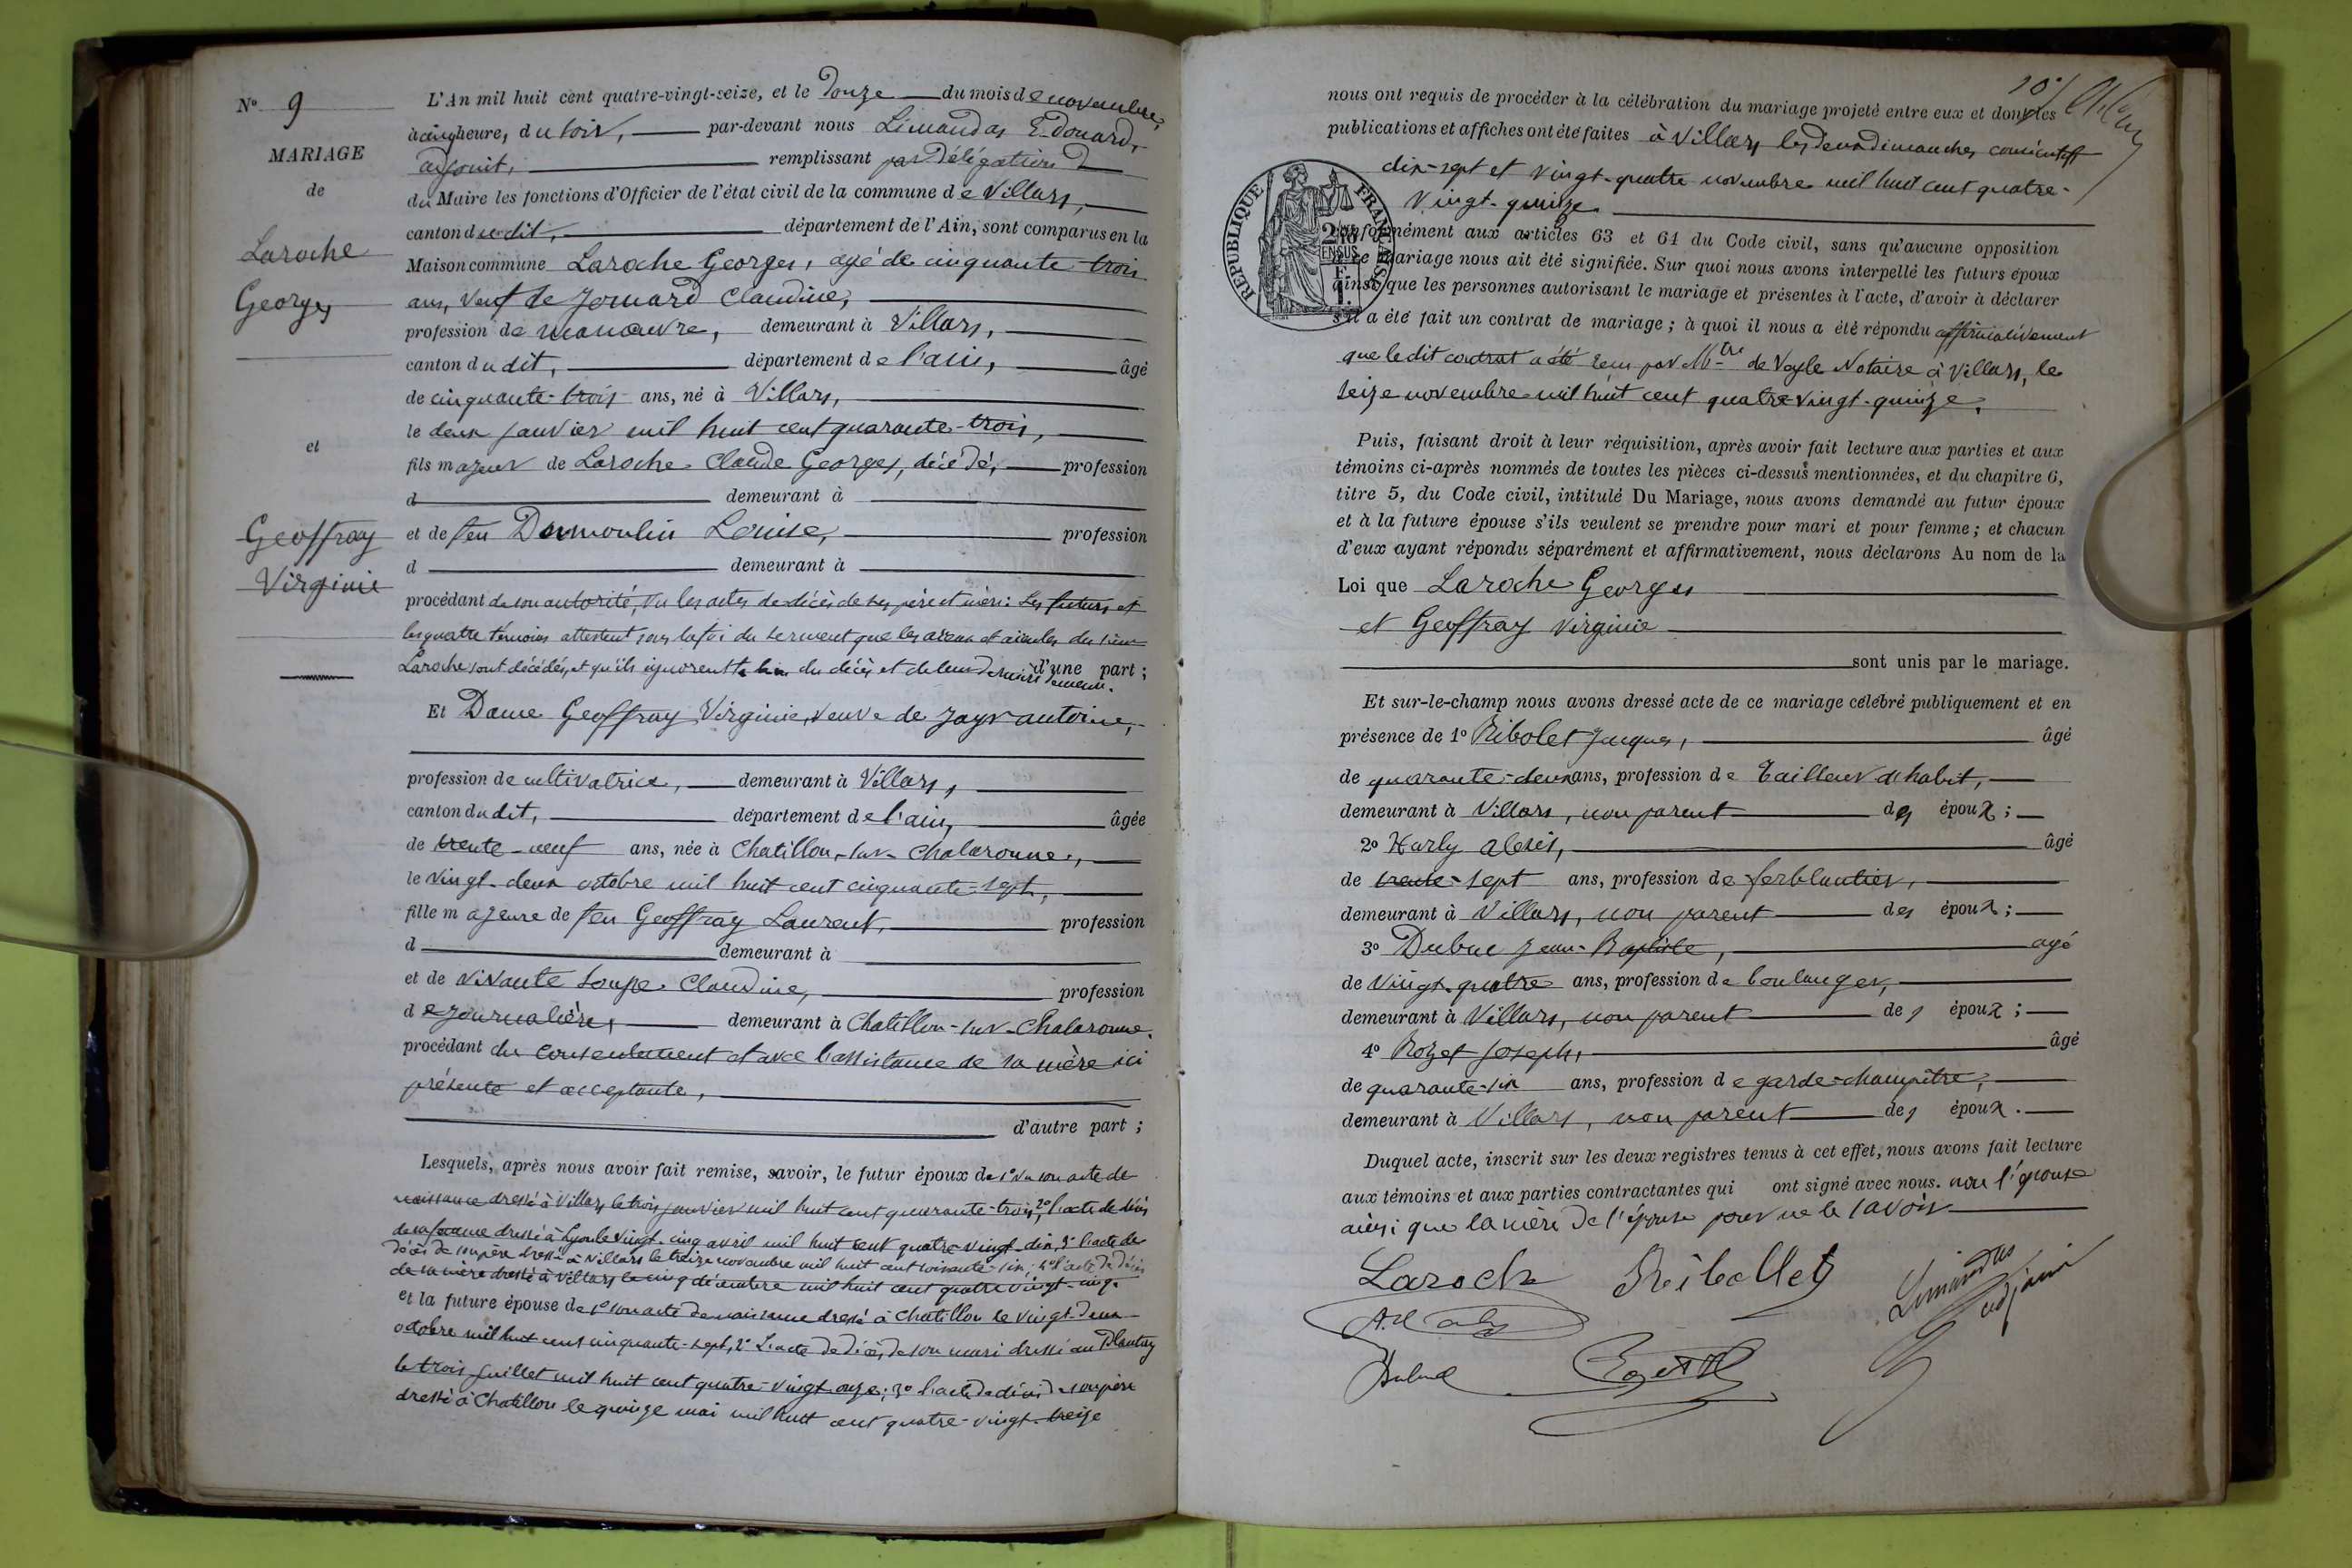 Nº 9
MARIAGE
de
Laroche
Georges
et
Geoffray
Virginie
L'An mil huit cent quatre-vingt-seize, et le Douze du mois de novembre,
à cinq heure, du soir, par-devant nous Limandas Edouard,
adjoint, remplissant par Délégation
du Maire les fonctions d'Officier de l'état civil de la commune de Villars,
canton du dit, département de l'Ain, sont comparus en la
Maison commune Laroche Georges, agé de cinquante trois
ans, Veuf de Jomard Claudine,
profession de manœuvre, demeurant à Villars,
canton du dit, département de l'ain, âgé
de cinquante-trois ans, né à Villars,
le deux janvier mil huit cent quarante-trois,
fils majeur de Laroche Claude Georges, décédé, profession
d demeurant à
et de feu Dumoulin Louise, profession
d demeurant à
procédant de son autorité, vu les actes de décès de ses père et mère: Les futurs et
les quatre témoins attestent sous la foi du serment que les aïeux et aïeules du sieur
Laroche sont décédés, et qu'ils ignorent le lieu du décès et de leur dernière demeure. d'une part;
Et Dame Geoffray Virginie, veuve de Jayr antoine,
profession de cultivatrice, demeurant à Villars,
canton du dit, département de l'ain, âgée
de trente-neuf ans, née à Chatillon-sur-Chalaronne,
le vingt-deux octobre mil huit cent cinquante-sept,
fille majeure de feu Geoffray Laurent, profession
d demeurant à
et de vivante Soupe Claudine, profession
de journalière, demeurant à Chatillon-sur-Chalaronne.
procédant du consentement et avec l'assistance de sa mère ici
présente et acceptante,
d'autre part;
Lesquels, après nous avoir fait remise, savoir, le futur époux de 1º son acte de
naissance dressé à Villars le trois janvier mil huit cent quarante-trois, 2º l'acte de décès
de sa femme dressé à Lyon le vingt-cinq avril mil huit cent quatre-vingt-dix, 3º l'acte de
décès de son père dressé à Villars le treize novembre mil huit cent soixante-six; 4º l'acte de décès
de sa mère dressé à Villars le cinq décembre mil huit cent quatre vingt-cinq.
et la future épouse de 1º son acte de naissance dressé à Chatillon le vingt-deux
octobre mil huit cent cinquante-sept, 2º L'acte de décès, de son mari dressé au Plantay
le trois juillet mil huit cent quatre-vingt onze; 3º l'acte de décès de son père
dressé à Chatillon le quinze mai mil huit cent quatre-vingt-treize
10º
nous ont requis de procéder à la célébration du mariage projeté entre eux et dont les
publications et affiches ont été faites à Villars les deux dimanches consécutifs
dix-sept et vingt-quatre novembre mil huit cent quatre-
vingt-quinze
RÉPUBLIQUE FRANÇAISE
conformément aux articles 63 et 64 du Code civil, sans qu'aucune opposition
à ce mariage nous ait été signifiée. Sur quoi nous avons interpellé les futurs époux
ainsi que les personnes autorisant le mariage et présentes à l'acte, d'avoir à déclarer
s'il a été fait un contrat de mariage; à quoi il nous a été répondu affirmativement
que le dit contrat a été reçu par Mtre de Vayle Notaire à Villars, le
seize novembre mil huit cent quatre vingt-quinze.
Puis, faisant droit à leur réquisition, après avoir fait lecture aux parties et aux
témoins ci-après nommés de toutes les pièces ci-dessus mentionnées, et du chapitre 6,
titre 5, du Code civil, intitulé Du Mariage, nous avons demandé au futur époux
et à la future épouse s'ils veulent se prendre pour mari et pour femme; et chacun
d'eux ayant répondu séparément et affirmativement, nous déclarons Au nom de la
Loi que Laroche Georges
et Geoffray Virginie
sont unis par le mariage.
Et sur-le-champ nous avons dressé acte de ce mariage célébré publiquement et en
présence de 1º Ribolet Jacques, âgé
de quarante-deux ans, profession de tailleur d'habit,
demeurant à Villars, non parent des époux;
2º Harly Alexis, âgé
de trente-sept ans, profession de ferblantier,
demeurant à Villars, non parent des époux;
3º Dubuc Jean-Baptiste, agé
de vingt-quatre ans, profession de boulanger,
demeurant à Villars, non parent des époux;
4º Rozet Joseph, âgé
de quarante-six ans, profession de garde-champêtre,
demeurant à Villars, non parent des époux.
Duquel acte, inscrit sur les deux registres tenus à cet effet, nous avons fait lecture
aux témoins et aux parties contractantes qui ont signé avec nous. non l'épouse
ainsi que la mère de l'épouse pour ne le savoir
Laroche Reibollet Limandas
adjoint
Rozet